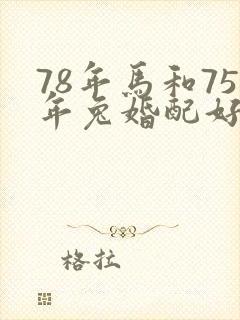 78年馬和75
年兔婚配好
格拉